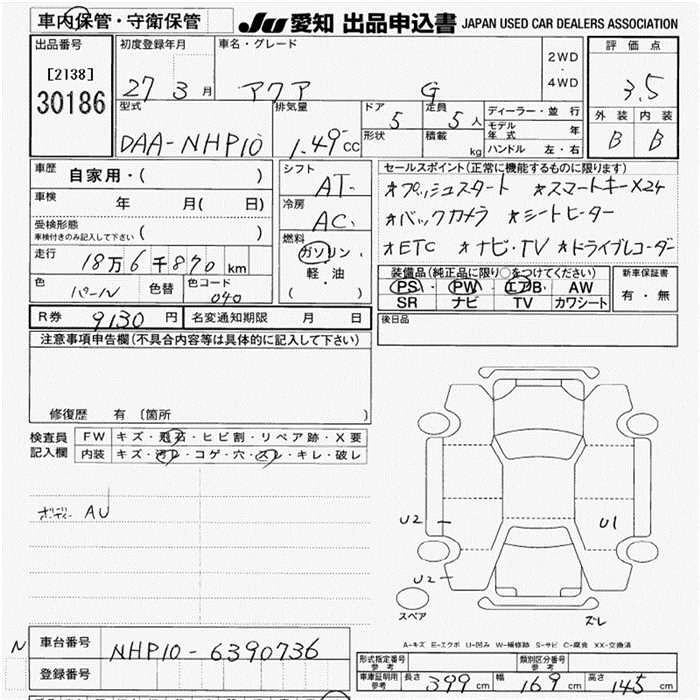 車内保管・守衛保管
JU 愛知 出品申込書 JAPAN USED CAR DEALERS ASSOCIATION
出品番号
[2138]
30186
初度登録年月
27 3 月
車名・グレード
アクア G
2WD
・
4WD
評価点
3.5
外装 内装
B B
型式
DAA-NHP10
排気量
1.49 cc
ドア
5
定員
5 人
形状
積載
kg
ディーラー・並行
モデル年式 年
ハンドル 左・右
車歴 自家用・( )
車検 年 月( 日)
受検形態
車検付きのみ記入して下さい ( )
走行 18万6千870 km
色 パール
色替
色コード 040
シフト
AT
冷房
AC
燃料
ガソリン
軽・油
( )
セールスポイント(正常に機能するものに限ります)
*プッシュスタート *スマートキーX24
*バックカメラ *シートヒーター
*ETC *ナビ・TV *ドライブレコーダー
装備品(純正品に限り○をつけてください)
PS・PW・エアB・AW
SR ナビ TV カワシート
新車保証書
有・無
R券 9130 円
名変通知期限 月 日
後日品
注意事項申告欄(不具合内容等は具体的に記入して下さい)
修復歴 有 〔箇所 〕
検査員記入欄
FW キズ・飛石・ヒビ割・リペア跡・X要
内装 キズ・汚レ・コゲ・穴・スレ・キレ・破レ
ボディー AU
U2
U1
U2
スペア
ズレ
A-キズ E-エクボ U-凹み W-補修跡 S-サビ C-腐食 XX-交換済
N
車台番号 NHP10-6390736
登録番号
形式指定番号
参考
類別区分番号
参考
車庫証明用
参考
長さ 399 cm 幅 169 cm 高さ 145 cm